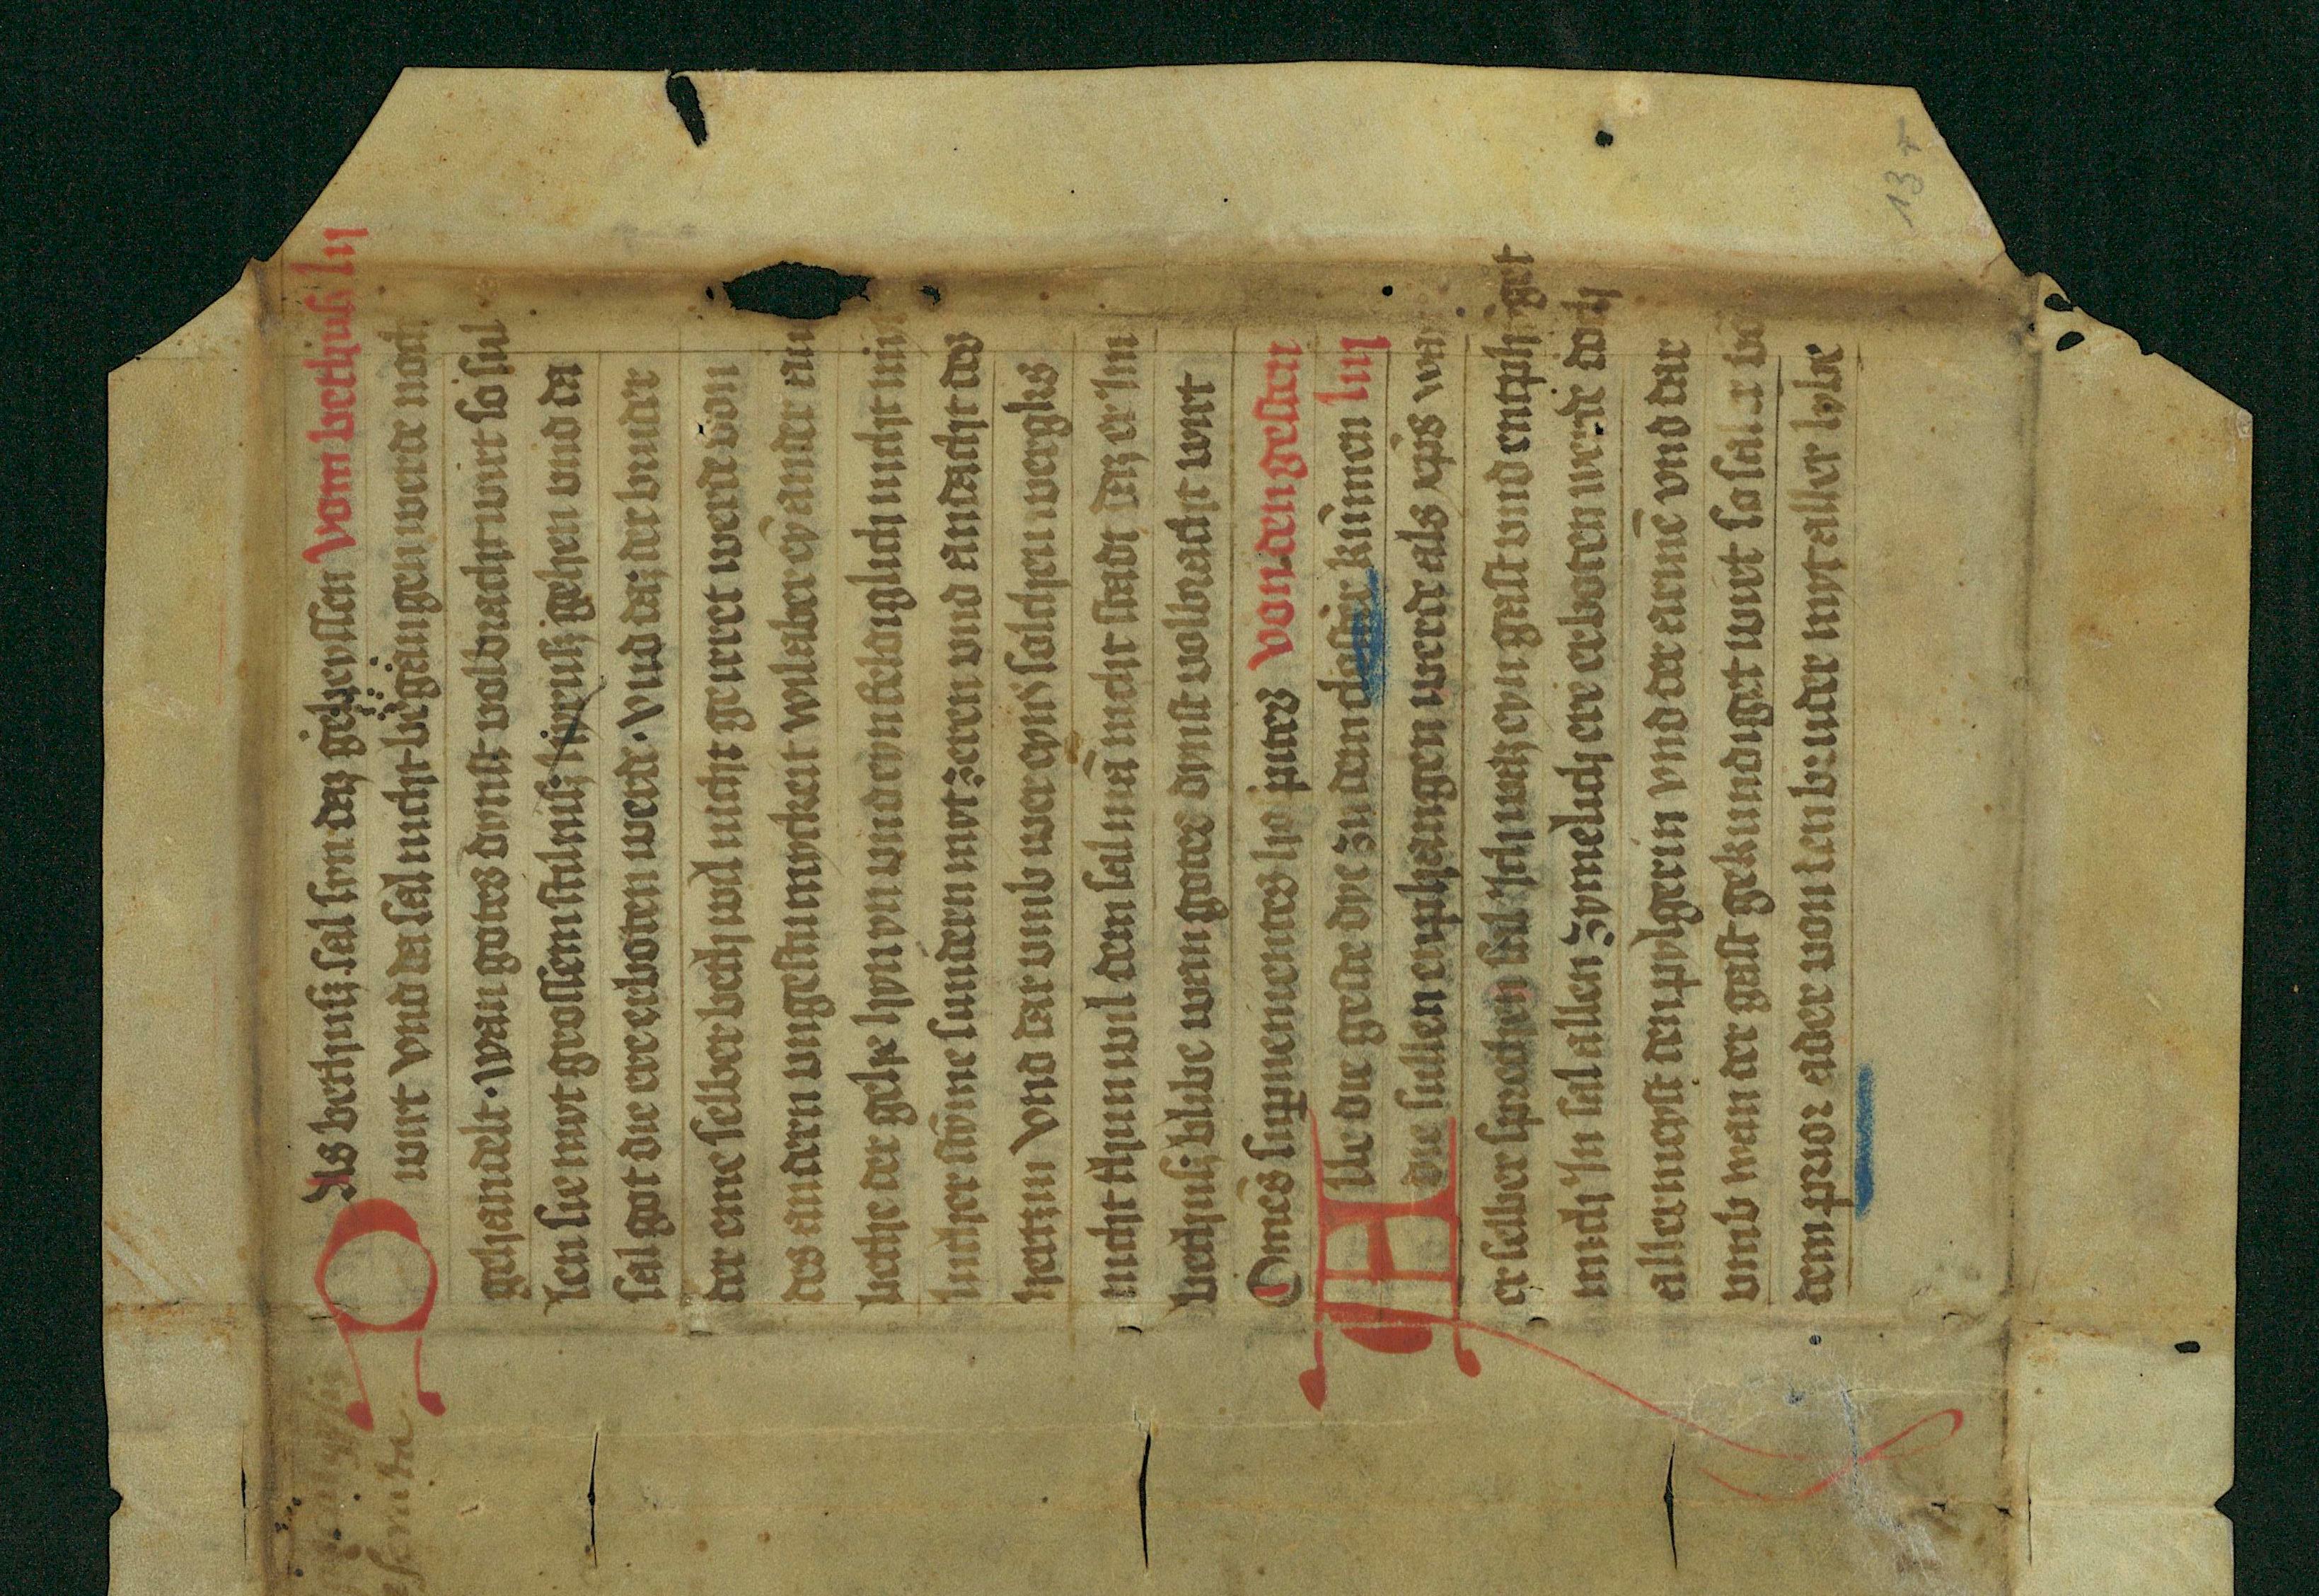 Das bethusz sal syn daz geheyssen Vom bethusz lij
wirt Vnd da sal nicht begangen werde noch
gehandelt. wan gotes dynst volbracht wirt so sul
len sie myt grossem stilnisz gehen vnd da
sal got die ere erboten werde. Vnd daz der bruder
der eme selber beth wol nicht geirret werde von
des andern vngestumyckeit wil aber eyn ander au
bethe der gehe hyn yn vnd eyn feldiglich nicht mit
luther stymme sundern myt zeren vnd andacht des
hertzin Vnd dar vmb wer eyns solchen wergkes
nicht thun wil dem sal man nicht stadt daz er im
bethusz blibe wan gotes dynst volbracht wirt
Omnes superuenientes hospites von den gesten
Alle die geste dye zu dem closter kummen liij
die sullen enphangen werde als xps wan
er selber sprechen sal Ich waz eyn gast vnd entphinget
mich In sal allen zymelich ere erboten werde doch
allermeyst den pylgerin vnd der arme vnd dar
vmb wan der gast gekundiget wirt so sal er
dem prior ader von den bruder myt aller lybe
13 r